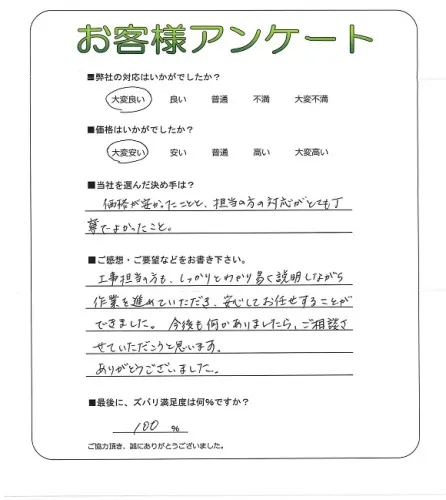 お客様アンケート
■弊社の対応はいかがでしたか？
大変良い 良い 普通 不満 大変不満
■価格はいかがでしたか？
大変安い 安い 普通 高い 大変高い
■当社を選んだ決め手は？
価格が安かったことと、担当の方の対応がとても丁
寧でよかったこと。
■ご感想・ご要望などをお書き下さい。
工事担当の方も、しっかりとわかり易く説明しながら
作業を進めていただき、安心してお任せすることが
できました。今後も何かありましたら、ご相談さ
せていただこうと思います。
ありがとうございました。
■最後に、ズバリ満足度は何%ですか？
100 %
ご協力頂き、誠にありがとうございました。